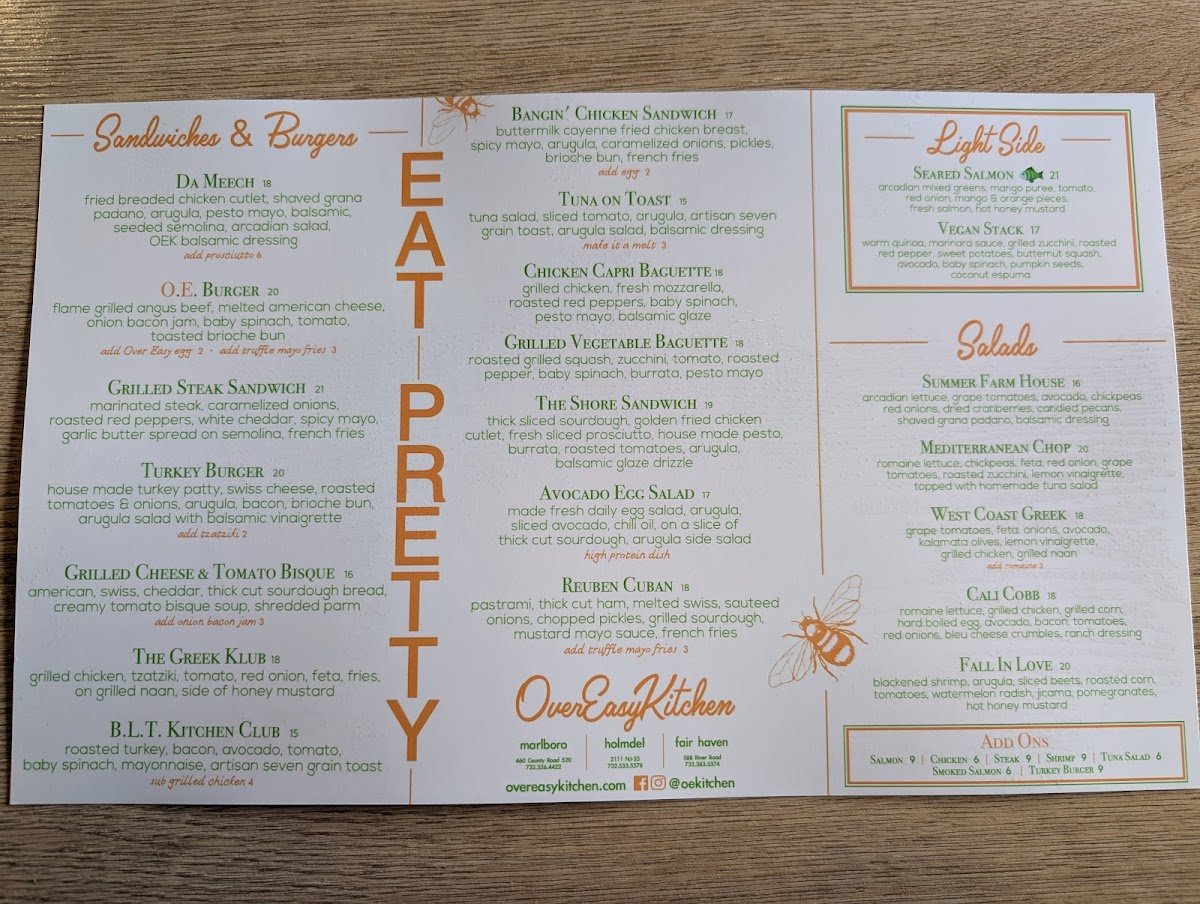 Sandwiches & Burgers
DA MEECH 18
fried breaded chicken cutlet, shaved grana
padano, arugula, pesto mayo, balsamic,
seeded semolina, arcadian salad,
OEK balsamic dressing
add prosciutto 6
O.E. BURGER 20
flame grilled angus beef, melted american cheese,
onion bacon jam, baby spinach, tomato,
toasted brioche bun
add Over Easy egg 2 · add truffle mayo fries 3
GRILLED STEAK SANDWICH 21
marinated steak, caramelized onions,
roasted red peppers, white cheddar, spicy mayo,
garlic butter spread on semolina, french fries
TURKEY BURGER 20
house made turkey patty, swiss cheese, roasted
tomatoes & onions, arugula, bacon, brioche bun,
arugula salad with balsamic vinaigrette
add tzatziki 2
GRILLED CHEESE & TOMATO BISQUE 16
american, swiss, cheddar, thick cut sourdough bread,
creamy tomato bisque soup, shredded parm
add onion bacon jam 3
THE GREEK KLUB 18
grilled chicken, tzatziki, tomato, red onion, feta, fries,
on grilled naan, side of honey mustard
B.L.T. KITCHEN CLUB 15
roasted turkey, bacon, avocado, tomato,
baby spinach, mayonnaise, artisan seven grain toast
sub grilled chicken 4
EAT PRETTY
BANGIN' CHICKEN SANDWICH 17
buttermilk cayenne fried chicken breast,
spicy mayo, arugula, caramelized onions, pickles,
brioche bun, french fries
add egg 2
TUNA ON TOAST 15
tuna salad, sliced tomato, arugula, artisan seven
grain toast, arugula salad, balsamic dressing
make it a melt 3
CHICKEN CAPRI BAGUETTE 18
grilled chicken, fresh mozzarella,
roasted red peppers, baby spinach,
pesto mayo, balsamic glaze
GRILLED VEGETABLE BAGUETTE 18
roasted grilled squash, zucchini, tomato, roasted
pepper, baby spinach, burrata, pesto mayo
THE SHORE SANDWICH 19
thick sliced sourdough, golden fried chicken
cutlet, fresh sliced prosciutto, house made pesto,
burrata, roasted tomatoes, arugula,
balsamic glaze drizzle
AVOCADO EGG SALAD 17
made fresh daily egg salad, arugula,
sliced avocado, chili oil, on a slice of
thick cut sourdough, arugula side salad
high protein dish
REUBEN CUBAN 18
pastrami, thick cut ham, melted swiss, sauteed
onions, chopped pickles, grilled sourdough,
mustard mayo sauce, french fries
add truffle mayo fries 3
OverEasyKitchen
marlboro
460 County Road 520
732.526.4422
holmdel
2111 NJ-35
732.533.5578
fair haven
588 River Road
732.383.5374
overeasykitchen.com @oekitchen
Light Side
SEARED SALMON 21
arcadian mixed greens, mango puree, tomato,
red onion, mango & orange pieces,
fresh salmon, hot honey mustard
VEGAN STACK 17
warm quinoa, marinara sauce, grilled zucchini, roasted
red pepper, sweet potatoes, butternut squash,
avocado, baby spinach, pumpkin seeds,
coconut espuma
Salads
SUMMER FARM HOUSE 16
arcadian lettuce, grape tomatoes, avocado, chickpeas
red onions, dried cranberries, candied pecans,
shaved grana padano, balsamic dressing
MEDITERRANEAN CHOP 20
romaine lettuce, chickpeas, feta, red onion, grape
tomatoes, roasted zucchini, lemon vinaigrette,
topped with homemade tuna salad
WEST COAST GREEK 18
grape tomatoes, feta, onions, avocado,
kalamata olives, lemon vinaigrette,
grilled chicken, grilled naan
add romaine 2
CALI COBB 18
romaine lettuce, grilled chicken, grilled corn,
hard boiled egg, avocado, bacon, tomatoes,
red onions, bleu cheese crumbles, ranch dressing
FALL IN LOVE 20
blackened shrimp, arugula, sliced beets, roasted corn,
tomatoes, watermelon radish, jicama, pomegranates,
hot honey mustard
ADD ONS
SALMON 9 | CHICKEN 6 | STEAK 9 | SHRIMP 9 | TUNA SALAD 6
SMOKED SALMON 6 | TURKEY BURGER 9